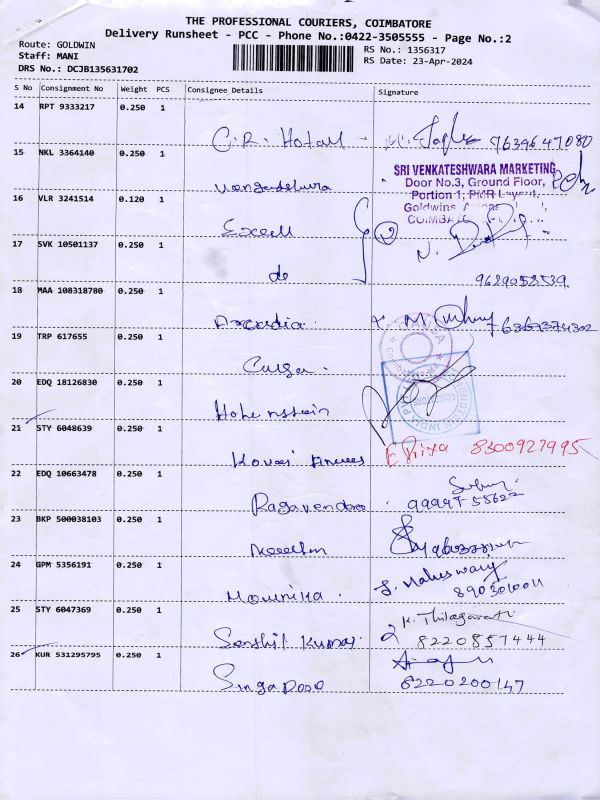 THE PROFESSIONAL COURIERS, COIMBATORE
Delivery Runsheet - PCC - Phone No.:0422-3505555 - Page No.:2
Route: GOLDWIN
Staff: MANI
DRS No.: DCJB135631702
RS No.: 1356317
RS Date: 23-Apr-2024
S No Consignment No Weight PCS Consignee Details Signature
14 RPT 9333217 0.250 1
C.R. Hotall 7639647080
15 NKL 3364140 0.250 1
SRI VENKATESHWARA MARKETING
Door No.3, Ground Floor,
Portion 1, PMR Layout,
Goldwins
16 VLR 3241514 0.120 1
Excell
17 SVK 10501137 0.250 1
do
9629058539
18 MAA 108318780 0.250 1
Arcadia
19 TRP 617655 0.250 1
20 EDQ 18126830 0.250 1
Hohenstein
21 STY 6048639 0.250 1
Kovai E Priya 8300927995
22 EDQ 10663478 0.250 1
Ragavendra
23 BKP 500038103 0.250 1
24 GPM 5356191 0.250 1
Mounika. S. Maheswary
25 STY 6047369 0.250 1
K. Thilagavathi
Senthil Kumar 8220857444
26 KUR 531295795 0.250 1
Singapore 8220200147